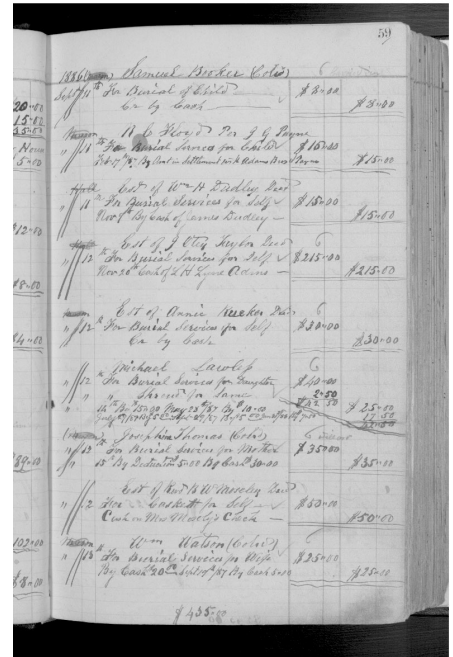 59
1886 Samuel Booker (Cold)
Sept 11th For Burial of Child $8.00
Cr by Cash $8.00
R C Floyd Per J G Payne
" 11th For Burial Services for Child $15.00
By Amt in Settlement with Payne $15.00
Est of Wm H Dudley Decd
" 11th For Burial Services for Self $15.00
Nov By Cash of James Dudley $15.00
Est of J Otey Taylor Decd 6
" 12th For Burial Services for Self $215.00
Nov 20th Cash of L H Lyne Admr $215.00
Est of Annie Rucker Decd 6
" 12th For Burial Services for Self $30.00
Cr by Cash $30.00
Michael Lawless 6
" 12th For Burial Services for Daughter $40.00
" " Shroud for Same 2.50
$42.50
15.00 May 23rd 87 By $10.00 $25.00
17.50
Josephine Thomas (Cold) 6
" 12th For Burial Services for Mother $35.00
15th By Deduction 5.00 By Cash 30.00 $35.00
Est of Revd Moseley Decd
" 12 For Caskett for Self $50.00
Cash in Mrs Mosely's Check $50.00
Wm Watson (Cold)
" 13th For Burial Services for Wife $25.00
By Cash 20.00 Sept 17th 87 By Cash 5.00 $25.00
$435.00
20.00
15.00
35.00
5.00
$12.00
$8.00
$4.00
89.00
102.00
$8.00